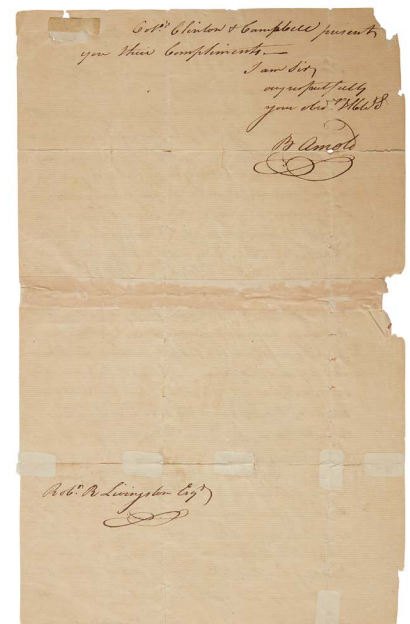 Cols. Clinton & Campbell present
you their Compliments—
I am Sir,
respectfully
your
B Arnold
Robt. R Livingston Esqr